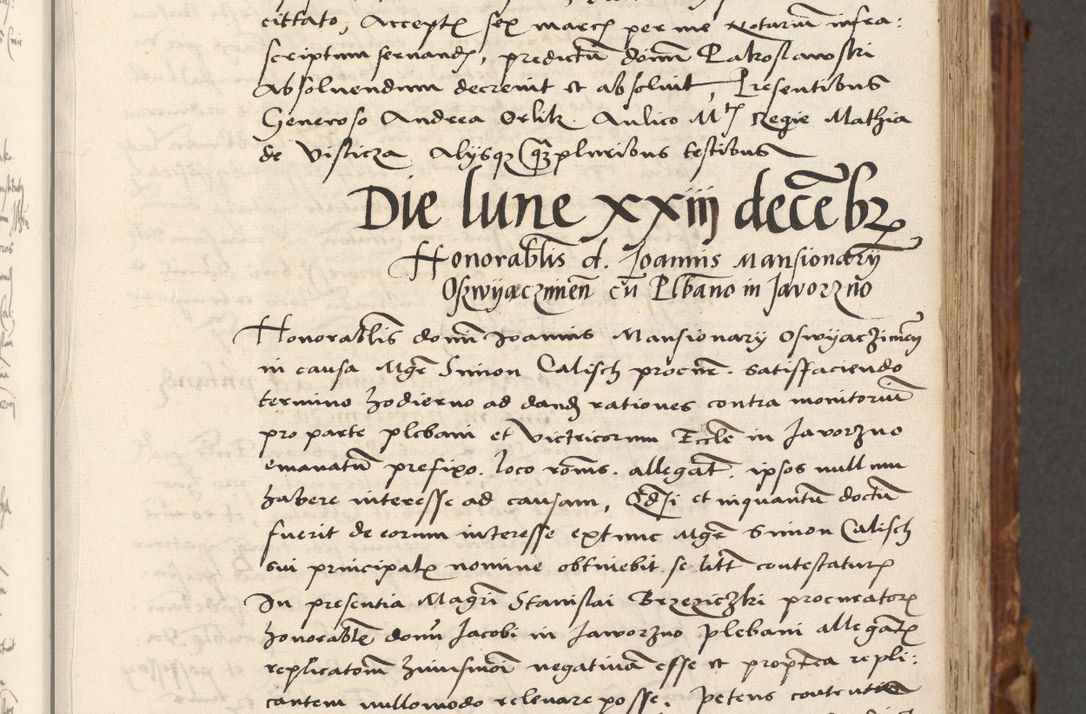 cittato, Accept̄ sex marc̄ per me Notariū infra:
scriptum fernand̄, predictū dom̄ Pakoslawski
Absoluendum decreuit et absoluit, Presentibus
Generoso Andrea Orlik Aulico M^t Regie Mathia
de Visticza Alysq̄ pluribus testibus
Die lune xxiij decēbr
Honorablis d. Joannis Mansionarÿ
Oszwÿaczimēn cū Plbano in Javorzno
Honorablis dom̄ Joannis Mansionary Oswÿaczimēn
in causa Mgr̄ Simon Calisch procur̄. satisfaciendo
termino hodierno ad dand̄ rationes contra monitoriū
pro parte plebani et victricorum Eccle in Javorzno
emanatū prefixo. loco rōnis. allegat̄. ipsos nullum
habere interesse ad causam, et inquantū doctū
fuerit de eorum interesse extunc Mgr̄ Simon Calisch
sui principalē nomine obtinebit se litt̄ contestaturū
In presentia Magrī Stanislai Brzeziczki procuratorē
honorablē dom̄ Jacobi in Jaworzno plebani allegat̄
replicationē huiusmōi negatiuā esse et proptēa repli:
cantem nullomodo releuare posse. Petens